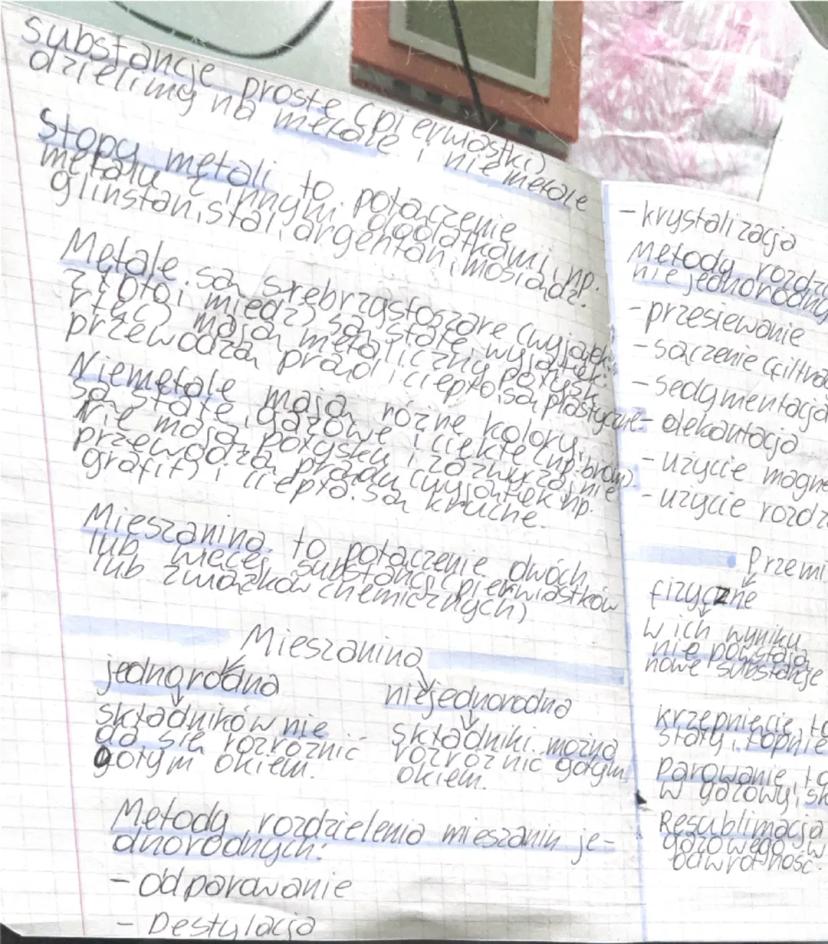 substancje proste (pierwiastki)
dzielimy na metale i niemetale
Stopy metali to połączenie
metalu z innymi dodatkami, np.
glinstan, stal, argentan i mosiądz.
Metale są srebrzystoszare (wyjątek:
złoto i miedź) są stałe, wyjątek:
rtęć) mają metaliczny połysk
przewodzą prąd i ciepło, są plastyczne
Niemetale mają różne kolory,
są stałe, gazowe i ciekłe (np. brom).
Nie mają połysku i zazwyczaj nie
przewodzą prądu (wyjątek np.
grafit) i ciepła. są kruche.
Mieszanina to połączenie dwóch
lub więcej substancji (pierwiastków
lub związków chemicznych)
Mieszanina
jednorodna
niejednorodna
składników nie
da się rozróżnić
gołym okiem.
składniki można
rozróżnić gołym
okiem.
Metody rozdzielenia mieszanin je-
dnorodnych:
- odparowanie
- Destylacja
- krystalizacja
Metody rozdzi
niejednorodny
- przesiewanie
- sączenie (filtra
- sedymentacja
- dekantacja
- użycie magne
- użycie rozdzi
Przemi
fizyczne
w ich wyniku
nie powstają
nowe substancje
krzepnięcie to
stały, topnie
parowanie to
w gazowy, sk
Resublimacja
gazowego w
odwrotność.